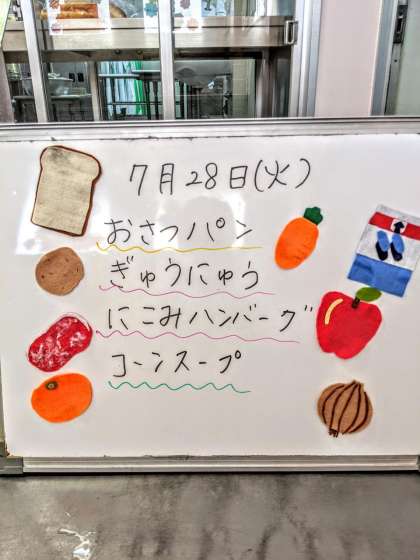 7月28日(火)
おさつパン
ぎゅうにゅう
にこみハンバーグ
コーンスープ